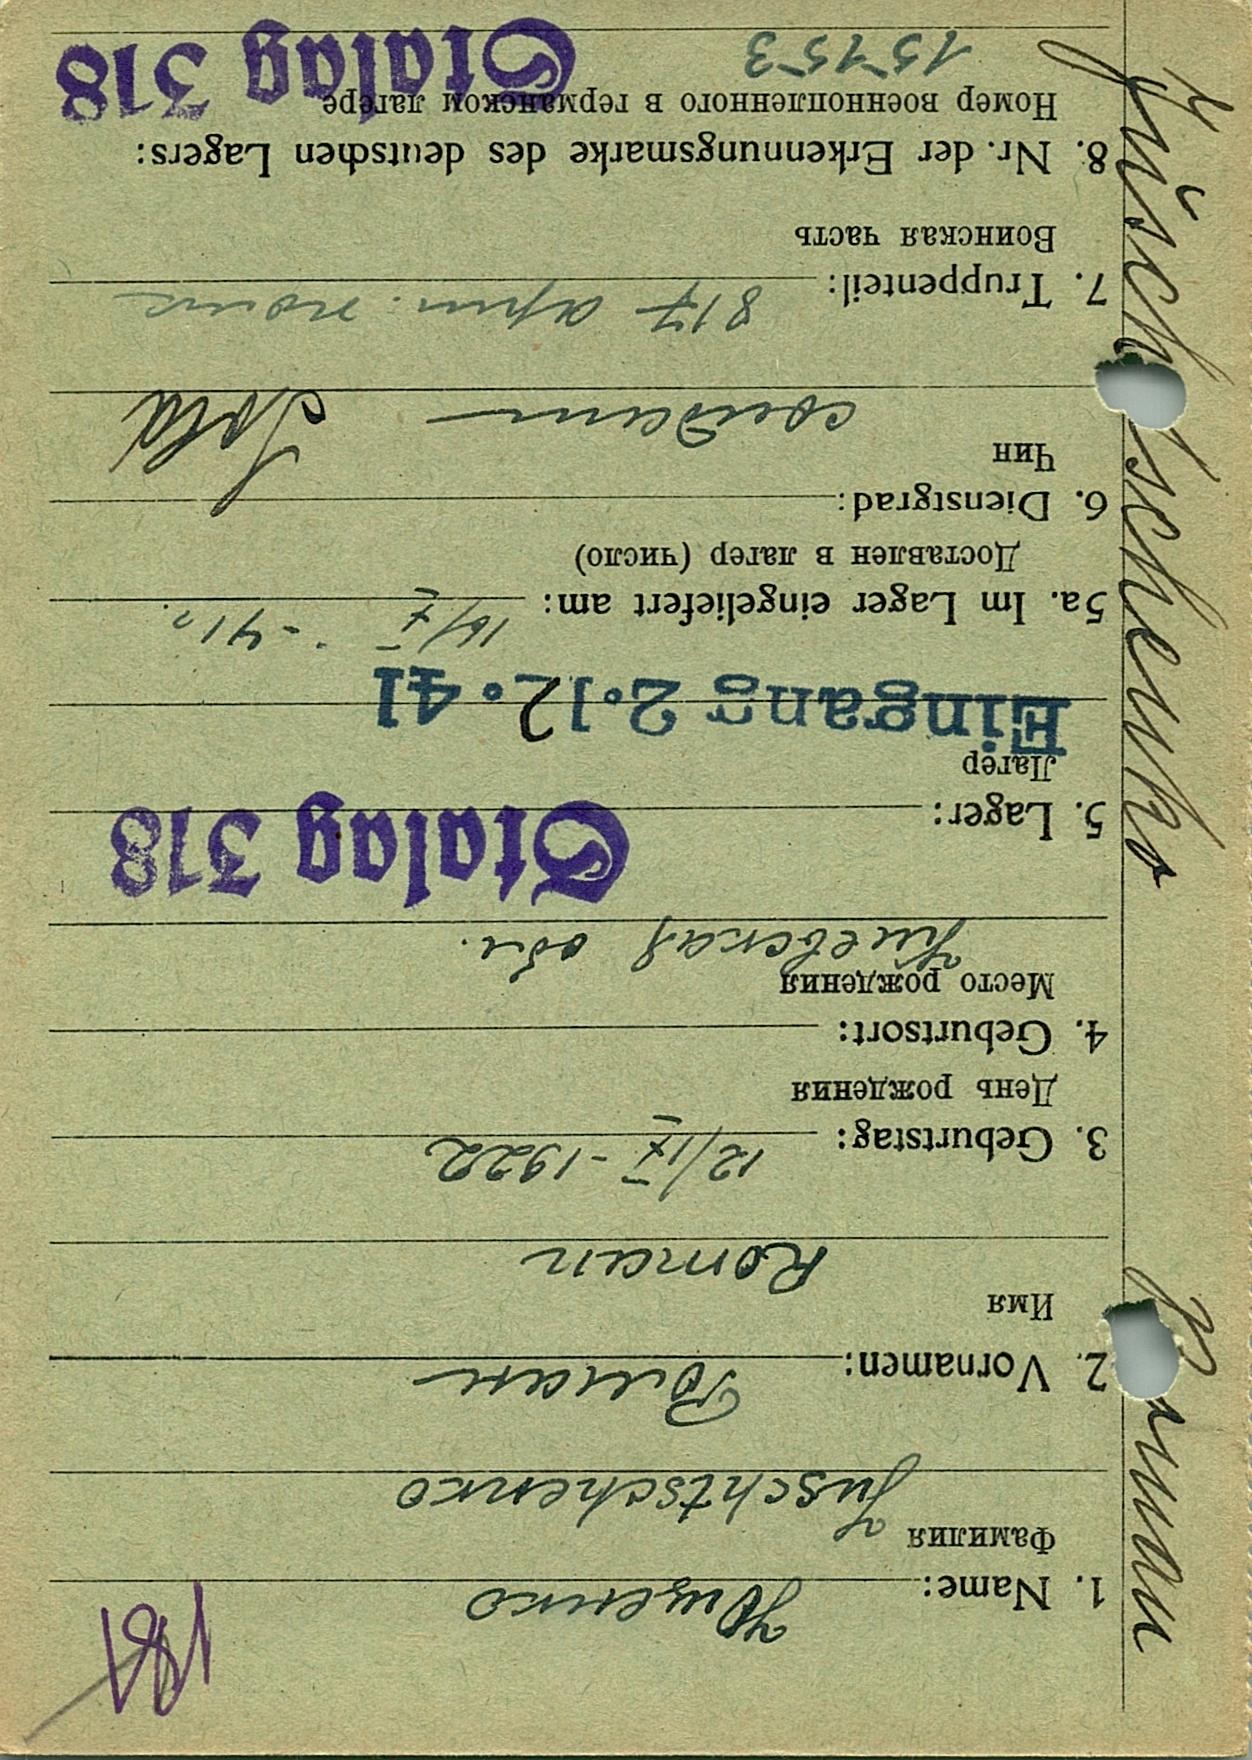 181
1. Name: Ющенко
Фамилия
Juschtschenko
2. Vornamen: Роман
Имя
Roman
3. Geburtstag: 12/IX-1922
День рождения
4. Geburtsort:
Место рождения
Киевская обл.
Stalag 318
5. Lager:
Лагер
Eingang 2.12.41
5a. Im Lager eingeliefert am: 16/X - 41 г.
Доставлен в лагер (число)
6. Dienstgrad:
Чин
солдат Sold
7. Truppenteil: 817 арт. полк
Воинская часть
8. Nr. der Erkennungsmarke des deutschen Lagers:
Номер военнопленного в германском лагере
Stalag 318
15153
Jüschtschenko Roman